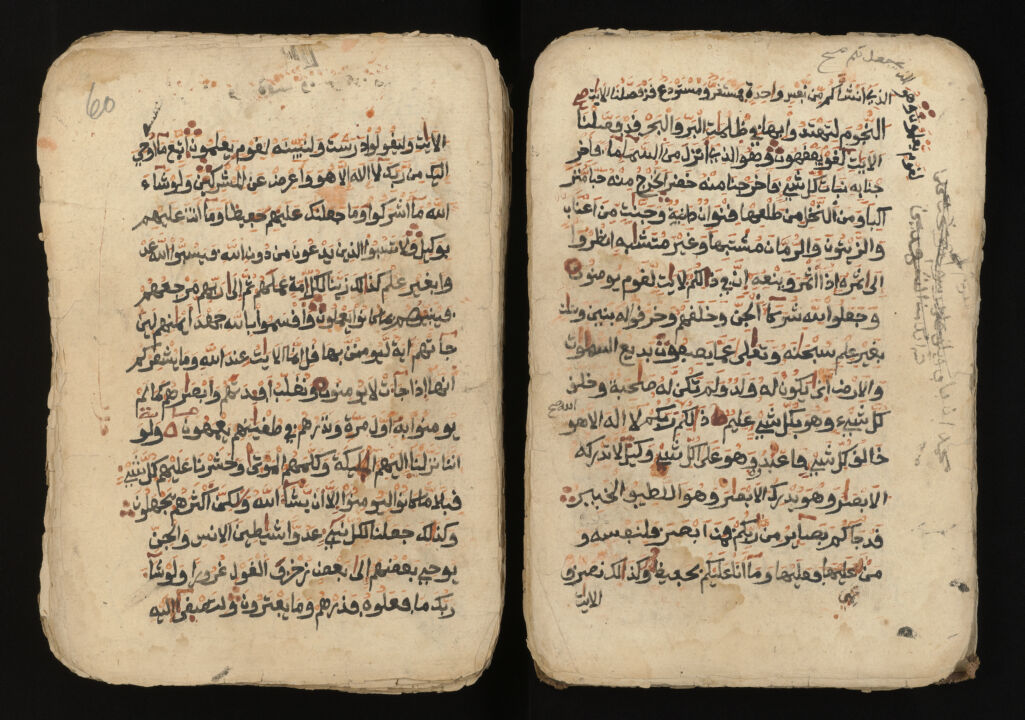 الذي انشأكم من نفس واحدة فمستقر ومستودع قد فصلنا الايت
النجوم لتهتدوا بها في ظلمت البر والبحر قد فصلنا
الايت لقوم يفقهون وهو الذي انزل من السماء ماء فاخر
جنا به نبات كل شيء فاخرجنا منه خضرا نخرج منه حبا متر
اكبا ومن النخل من طلعها قنوان دانية وجنت من اعناب
والزيتون والرمان مشتبها وغير متشبه انظروا
الى ثمره اذا اثمر وينعه ان في ذالكم لايت لقوم يومنون
وجعلوا لله شركاء الجن وخلقهم وخرقوا له بنين وبنت
بغير علم سبحنه وتعلى عما يصفون بديع السموت
والارض انى يكون له ولد ولم تكن له صحبة وخلق
كل شيء وهو بكل شيء عليم ذلكم ربكم لا اله الا هو
خالق كل شيء فاعبدوه وهو على كل شيء وكيل لا تدركه
الابصر وهو يدرك الابصر وهو اللطيف الخبير
قد جاكم بصاير من ربكم فمن ابصر فلنفسه و
من عمي فعليها وما انا عليكم بحفيظ وكذلك نصرف
الايت
60
الايت وليقولوا درست ولنبينه لقوم يعلمون اتبع ما اوحي
اليك من ربك لا اله الا هو واعرض عن المشركين ولو شاء
الله ما اشركوا وما جعلنك عليهم حفيظا وما انت عليهم
بوكيل ولا تسبوا الذين يدعون من دون الله فيسبوا الله عد
وا بغير علم كذلك زينا لكل امة عملهم ثم الى ربهم مرجعهم
فينبئهم بما كانوا يعملون واقسموا بالله جهد ايمنهم لين
جاتهم اية ليومنن بها قل انما الايت عند الله وما يشعركم
انها اذا جات لا يومنون ونقلب افيدتهم وابصرهم كما لم
يومنوا به اول مرة ونذرهم في طغينهم يعمهون ولو
اننا نزلنا اليهم المليكة وكلمهم الموتى وحشرنا عليهم كل شيء
قبلا ما كانوا ليومنوا الا ان يشاء الله ولكن اكثرهم يجهلون
وكذلك جعلنا لكل نبي عدوا شيطين الانس والجن
يوحي بعضهم الى بعض زخرف القول غرورا ولو شاء
ربك ما فعلوه فذرهم وما يفترون ولتصغى اليه